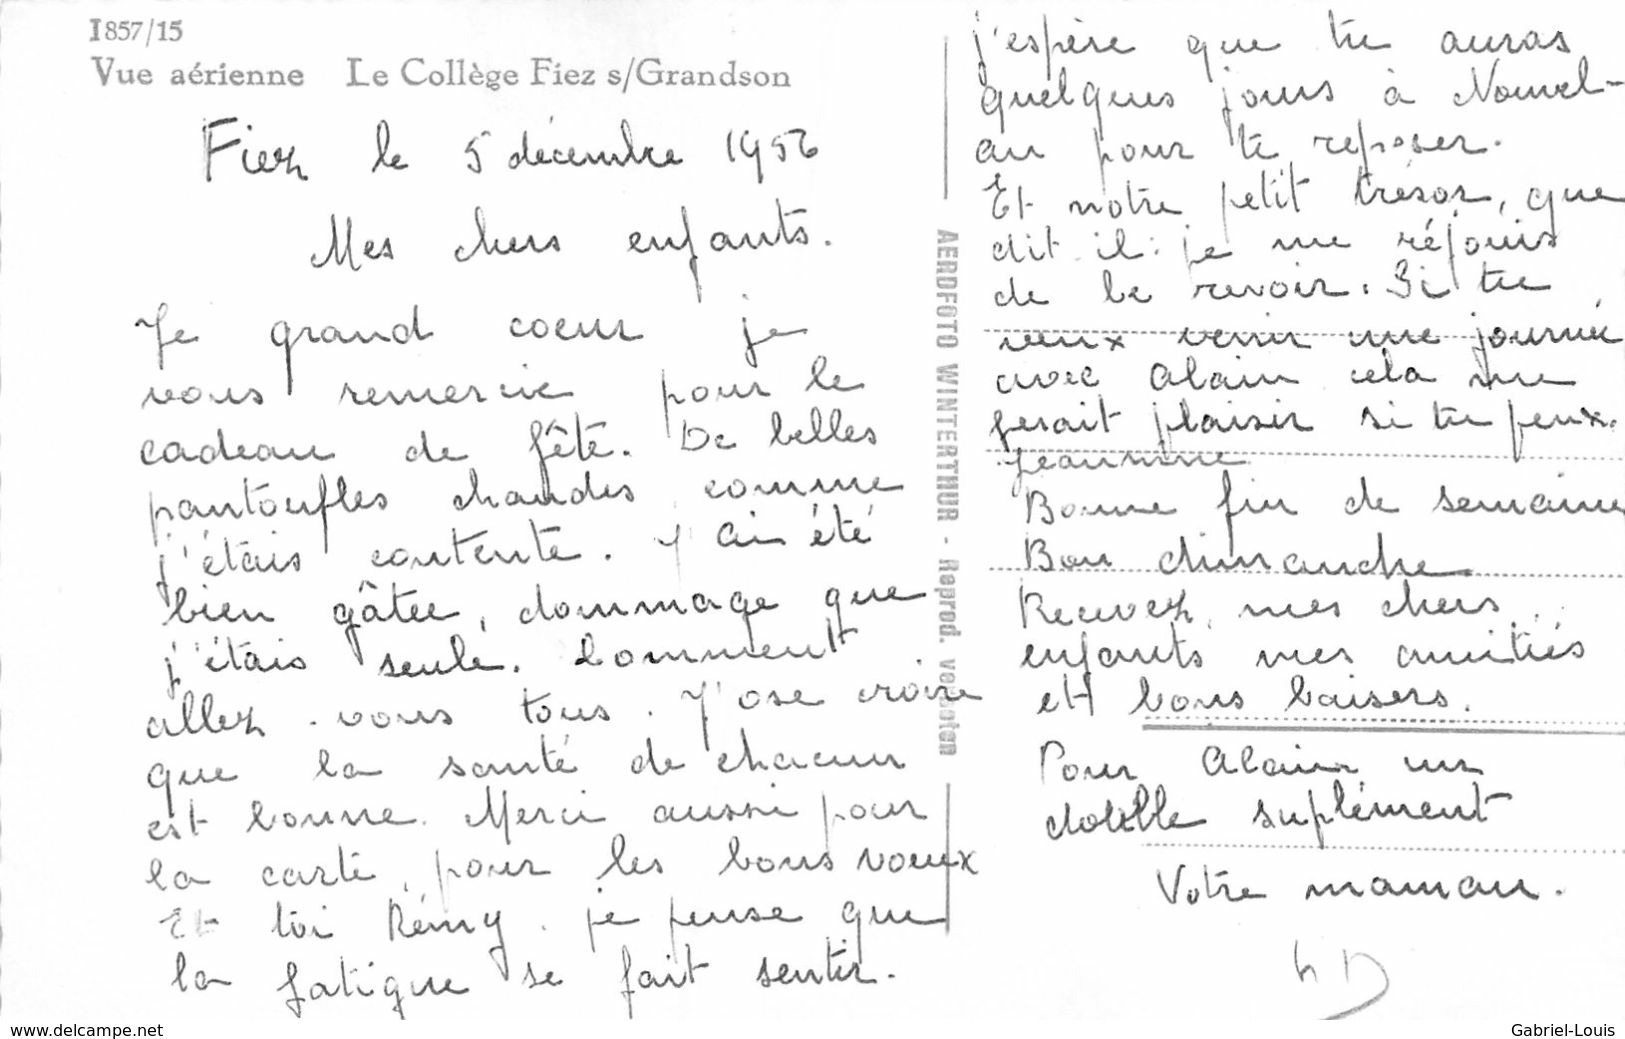 I857/15
Vue aérienne Le Collège Fiez s/Grandson
Fiez le 5 décembre 1956
Mes chers enfants.
De grand coeur je
vous remercie pour le
cadeau de fête. De belles
pantoufles chaudes, comme
j'étais contente. J'ai été
bien gâtée, dommage que
j'étais seule. Comment
allez-vous tous. J'ose croire
que la santé de chacun
est bonne. Merci aussi pour
la carte, pour les bons voeux
Et toi Rémy. je pense que
la fatigue se fait sentir.
j'espère que tu auras
quelques jours à Nouvel-
an pour te reposer.
Et notre petit trésor, que
dit il: je me réjouis
de le revoir. Si tu
veux venir une journée
avec Alain cela me
ferait plaisir si tu peux.
Jeannine
Bonne fin de semaine
Bon dimanche
Recevez, mes chers
enfants mes amitiés
et bons baisers.
Pour Alain un
double suplément
Votre maman.
AEROFOTO WINTERTHUR - Reprod. verboten
www.delcampe.net
Gabriel-Louis